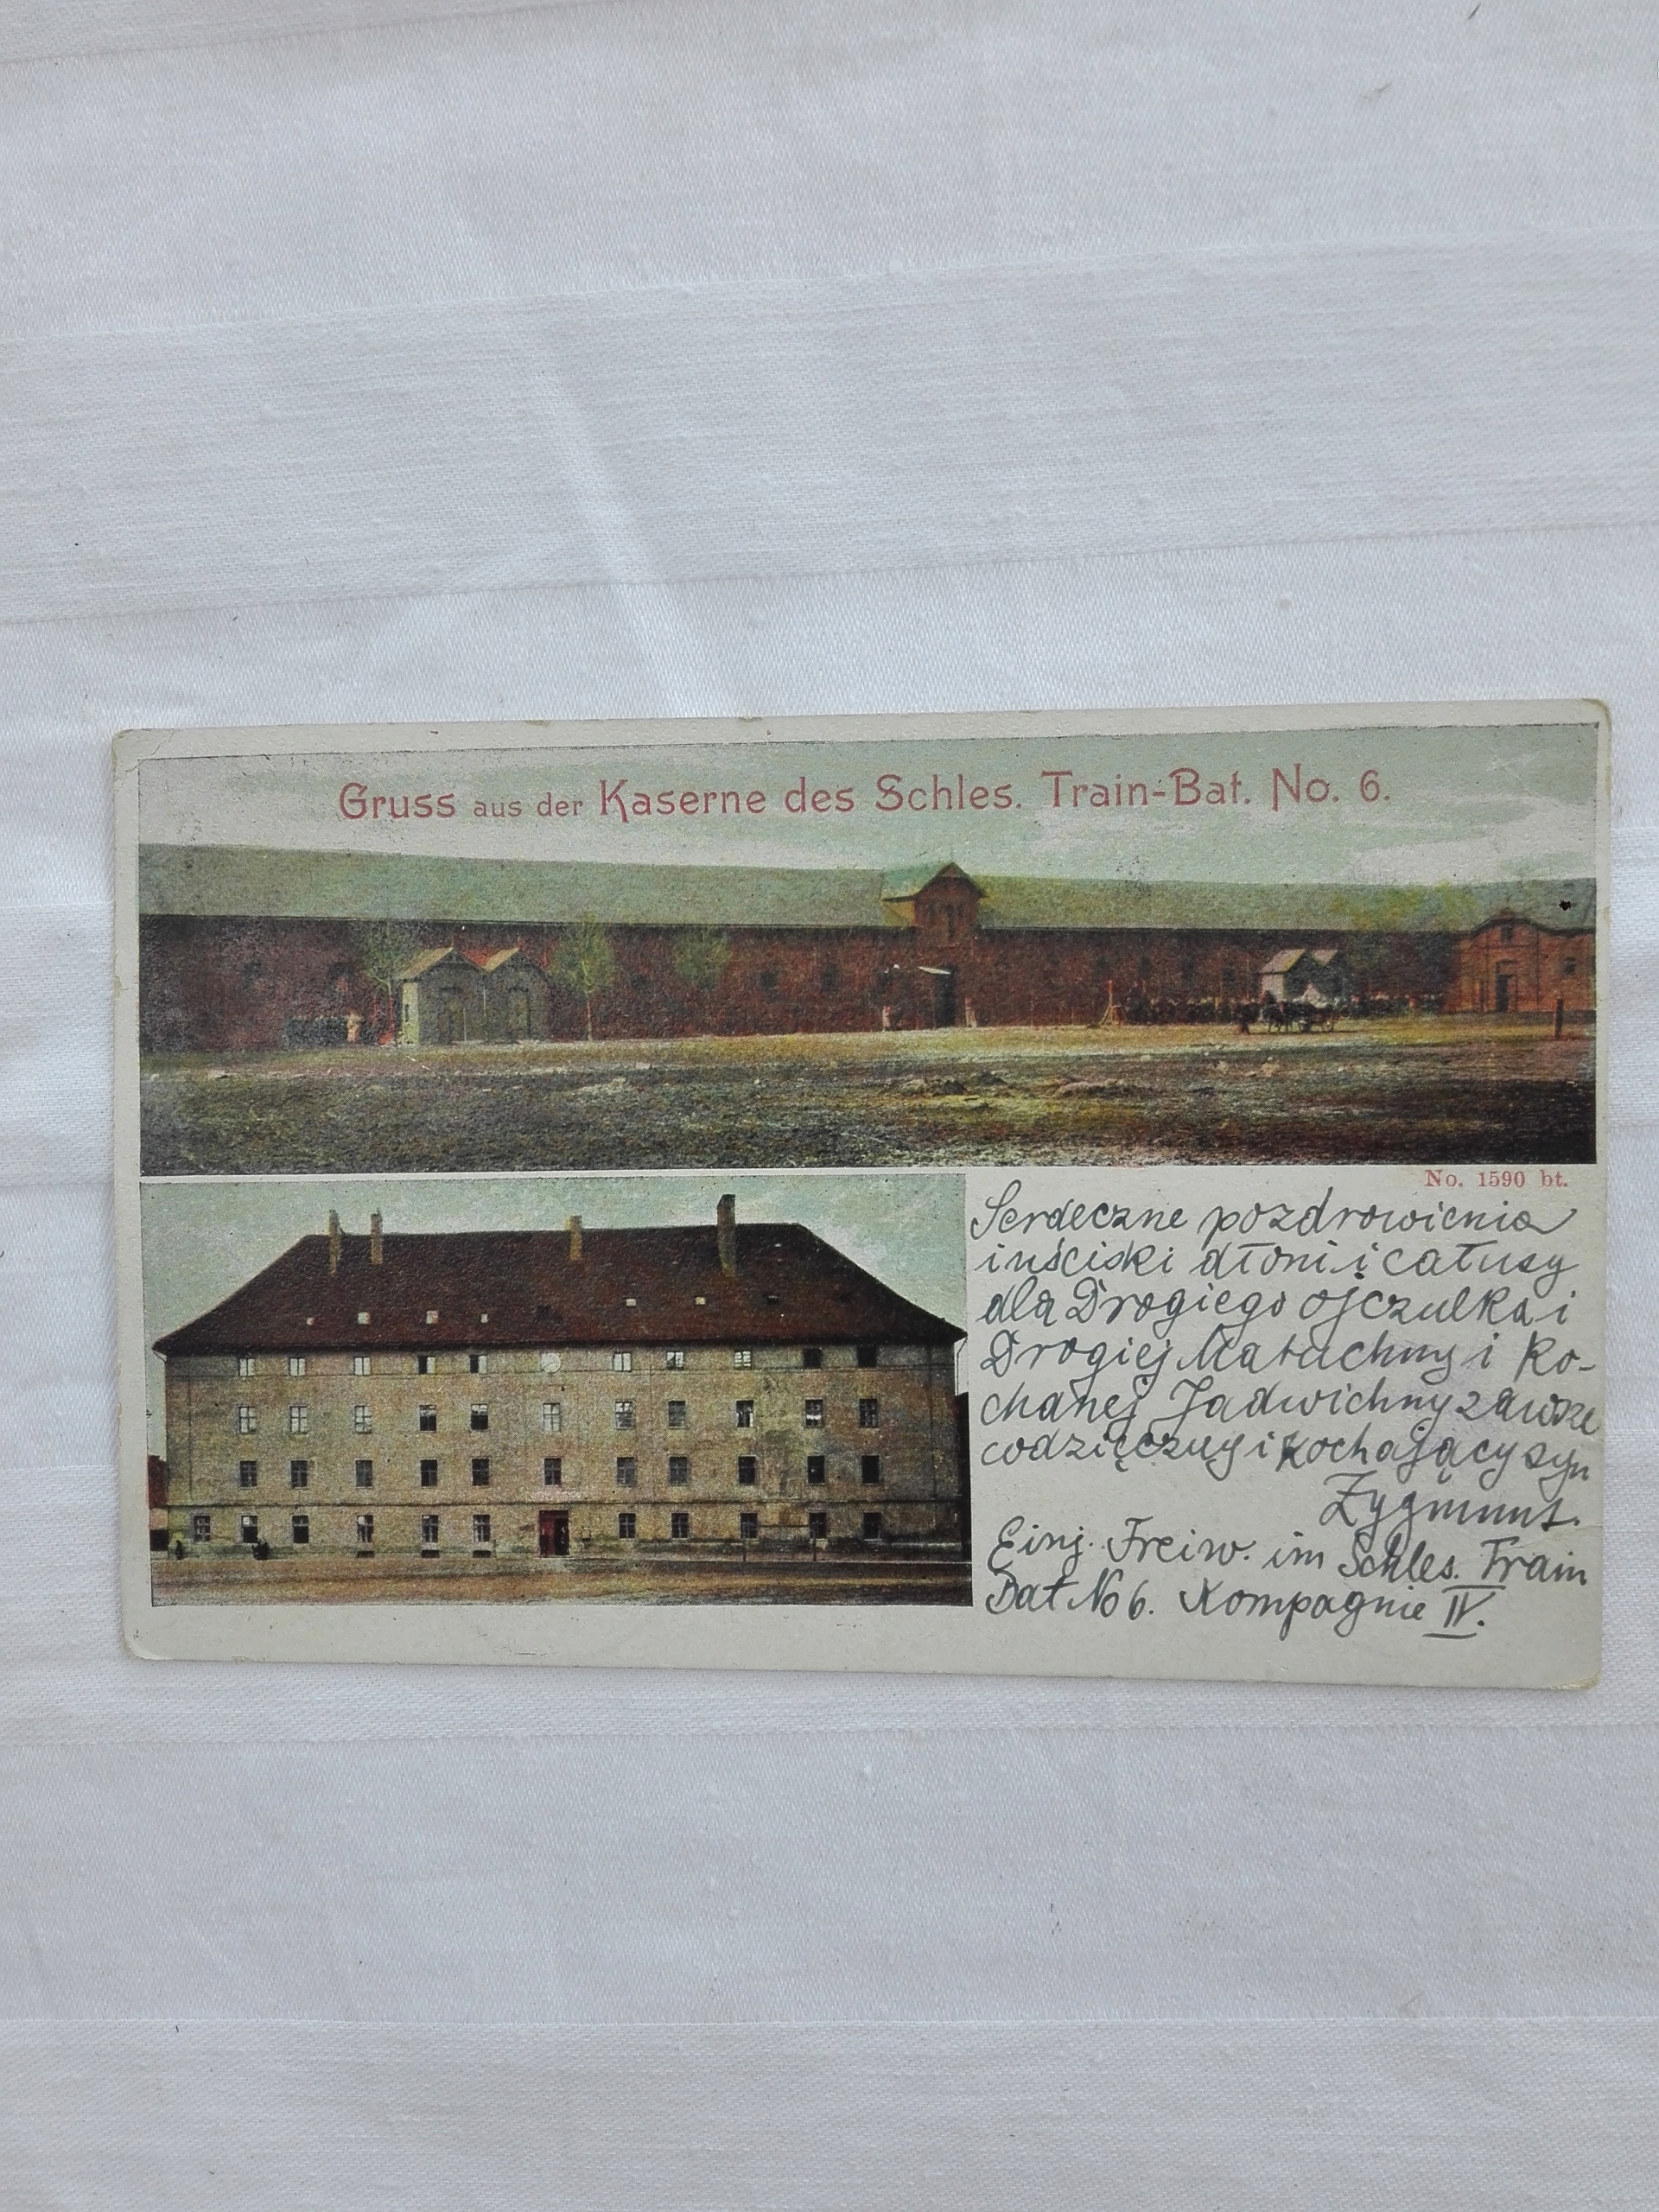 Gruss aus der Kaserne des Schles. Train-Bat. No. 6.
No. 1590 bt.
Serdeczne pozdrowienia
i uściski dłoni i całusy
dla Drogiego Ojczulka i
Drogiej Matuchny i Ko-
chanej Jadwichny zawsze
wdzięczny i kochający syn
Zygmunt.
Einj. Freiw. im Schles. Train
Bat No 6. Kompagnie IV.